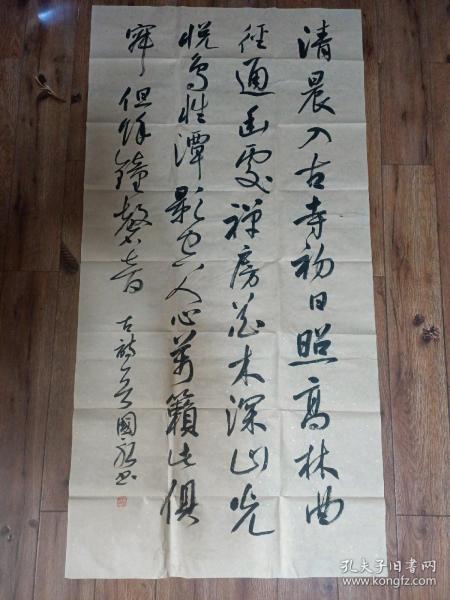 清晨入古寺初日照高林曲
径通幽處禅房花木深山光
悦鸟性潭影空人心萬籟此俱
寂但餘鐘磬音
古詩一首國 书
孔夫子旧书网
www.kongfz.com